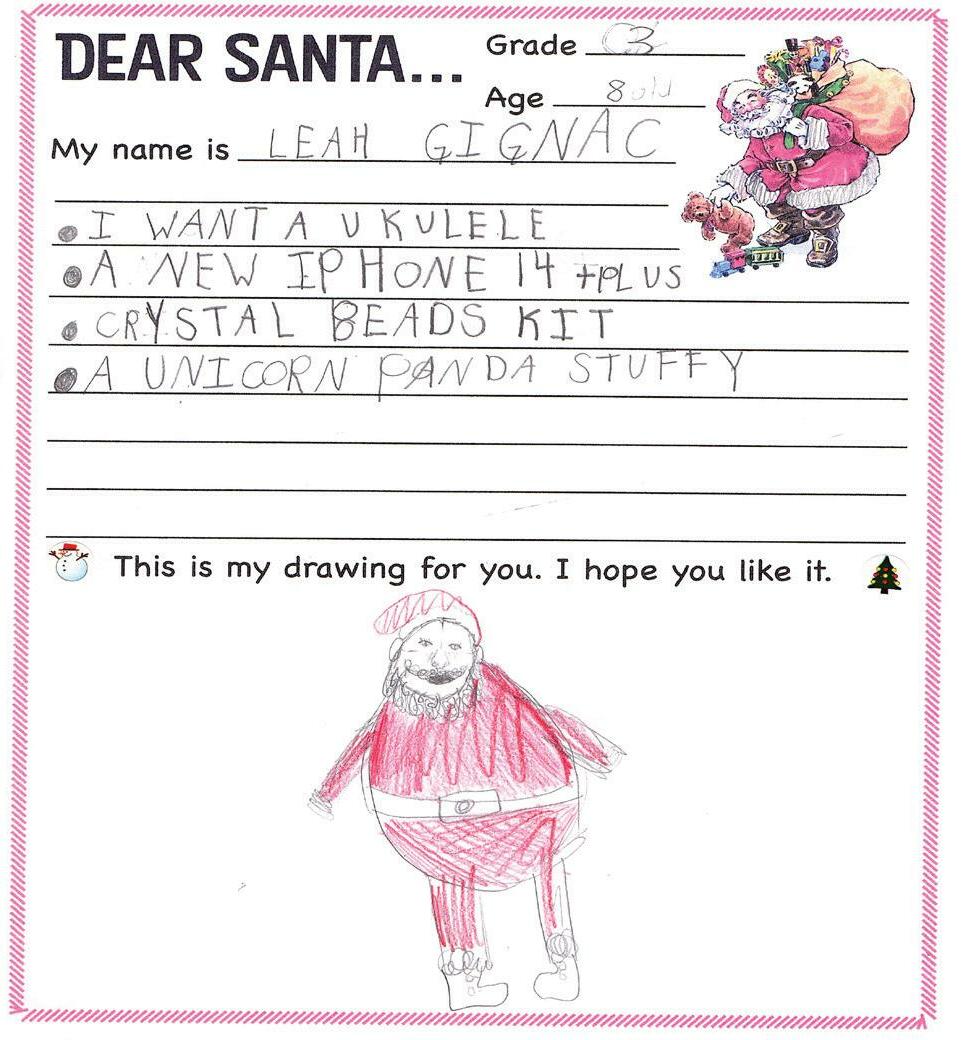 DEAR SANTA...
Grade 3
Age 8 old
My name is LEAH GIGNAC
• I WANT A UKULELE
• A NEW IPHONE 14 +PLUS
• CRYSTAL BEADS KIT
• A UNICORN PANDA STUFFY
This is my drawing for you. I hope you like it.